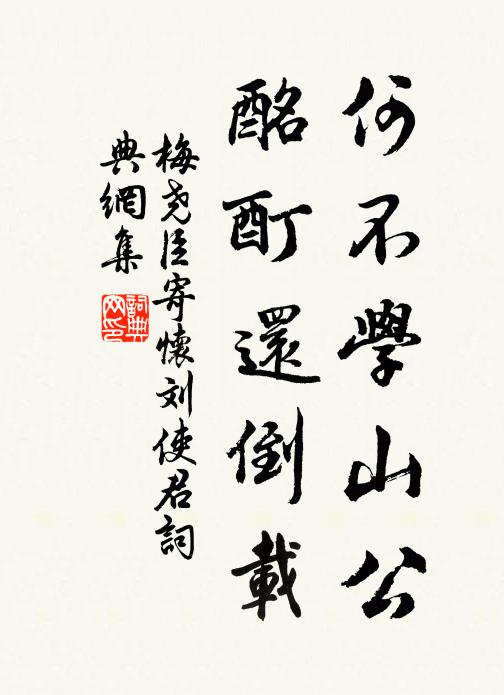 何不學山公
酩酊還倒載
梅尧臣寄懷刘使君詞
典網集
詞典
网印